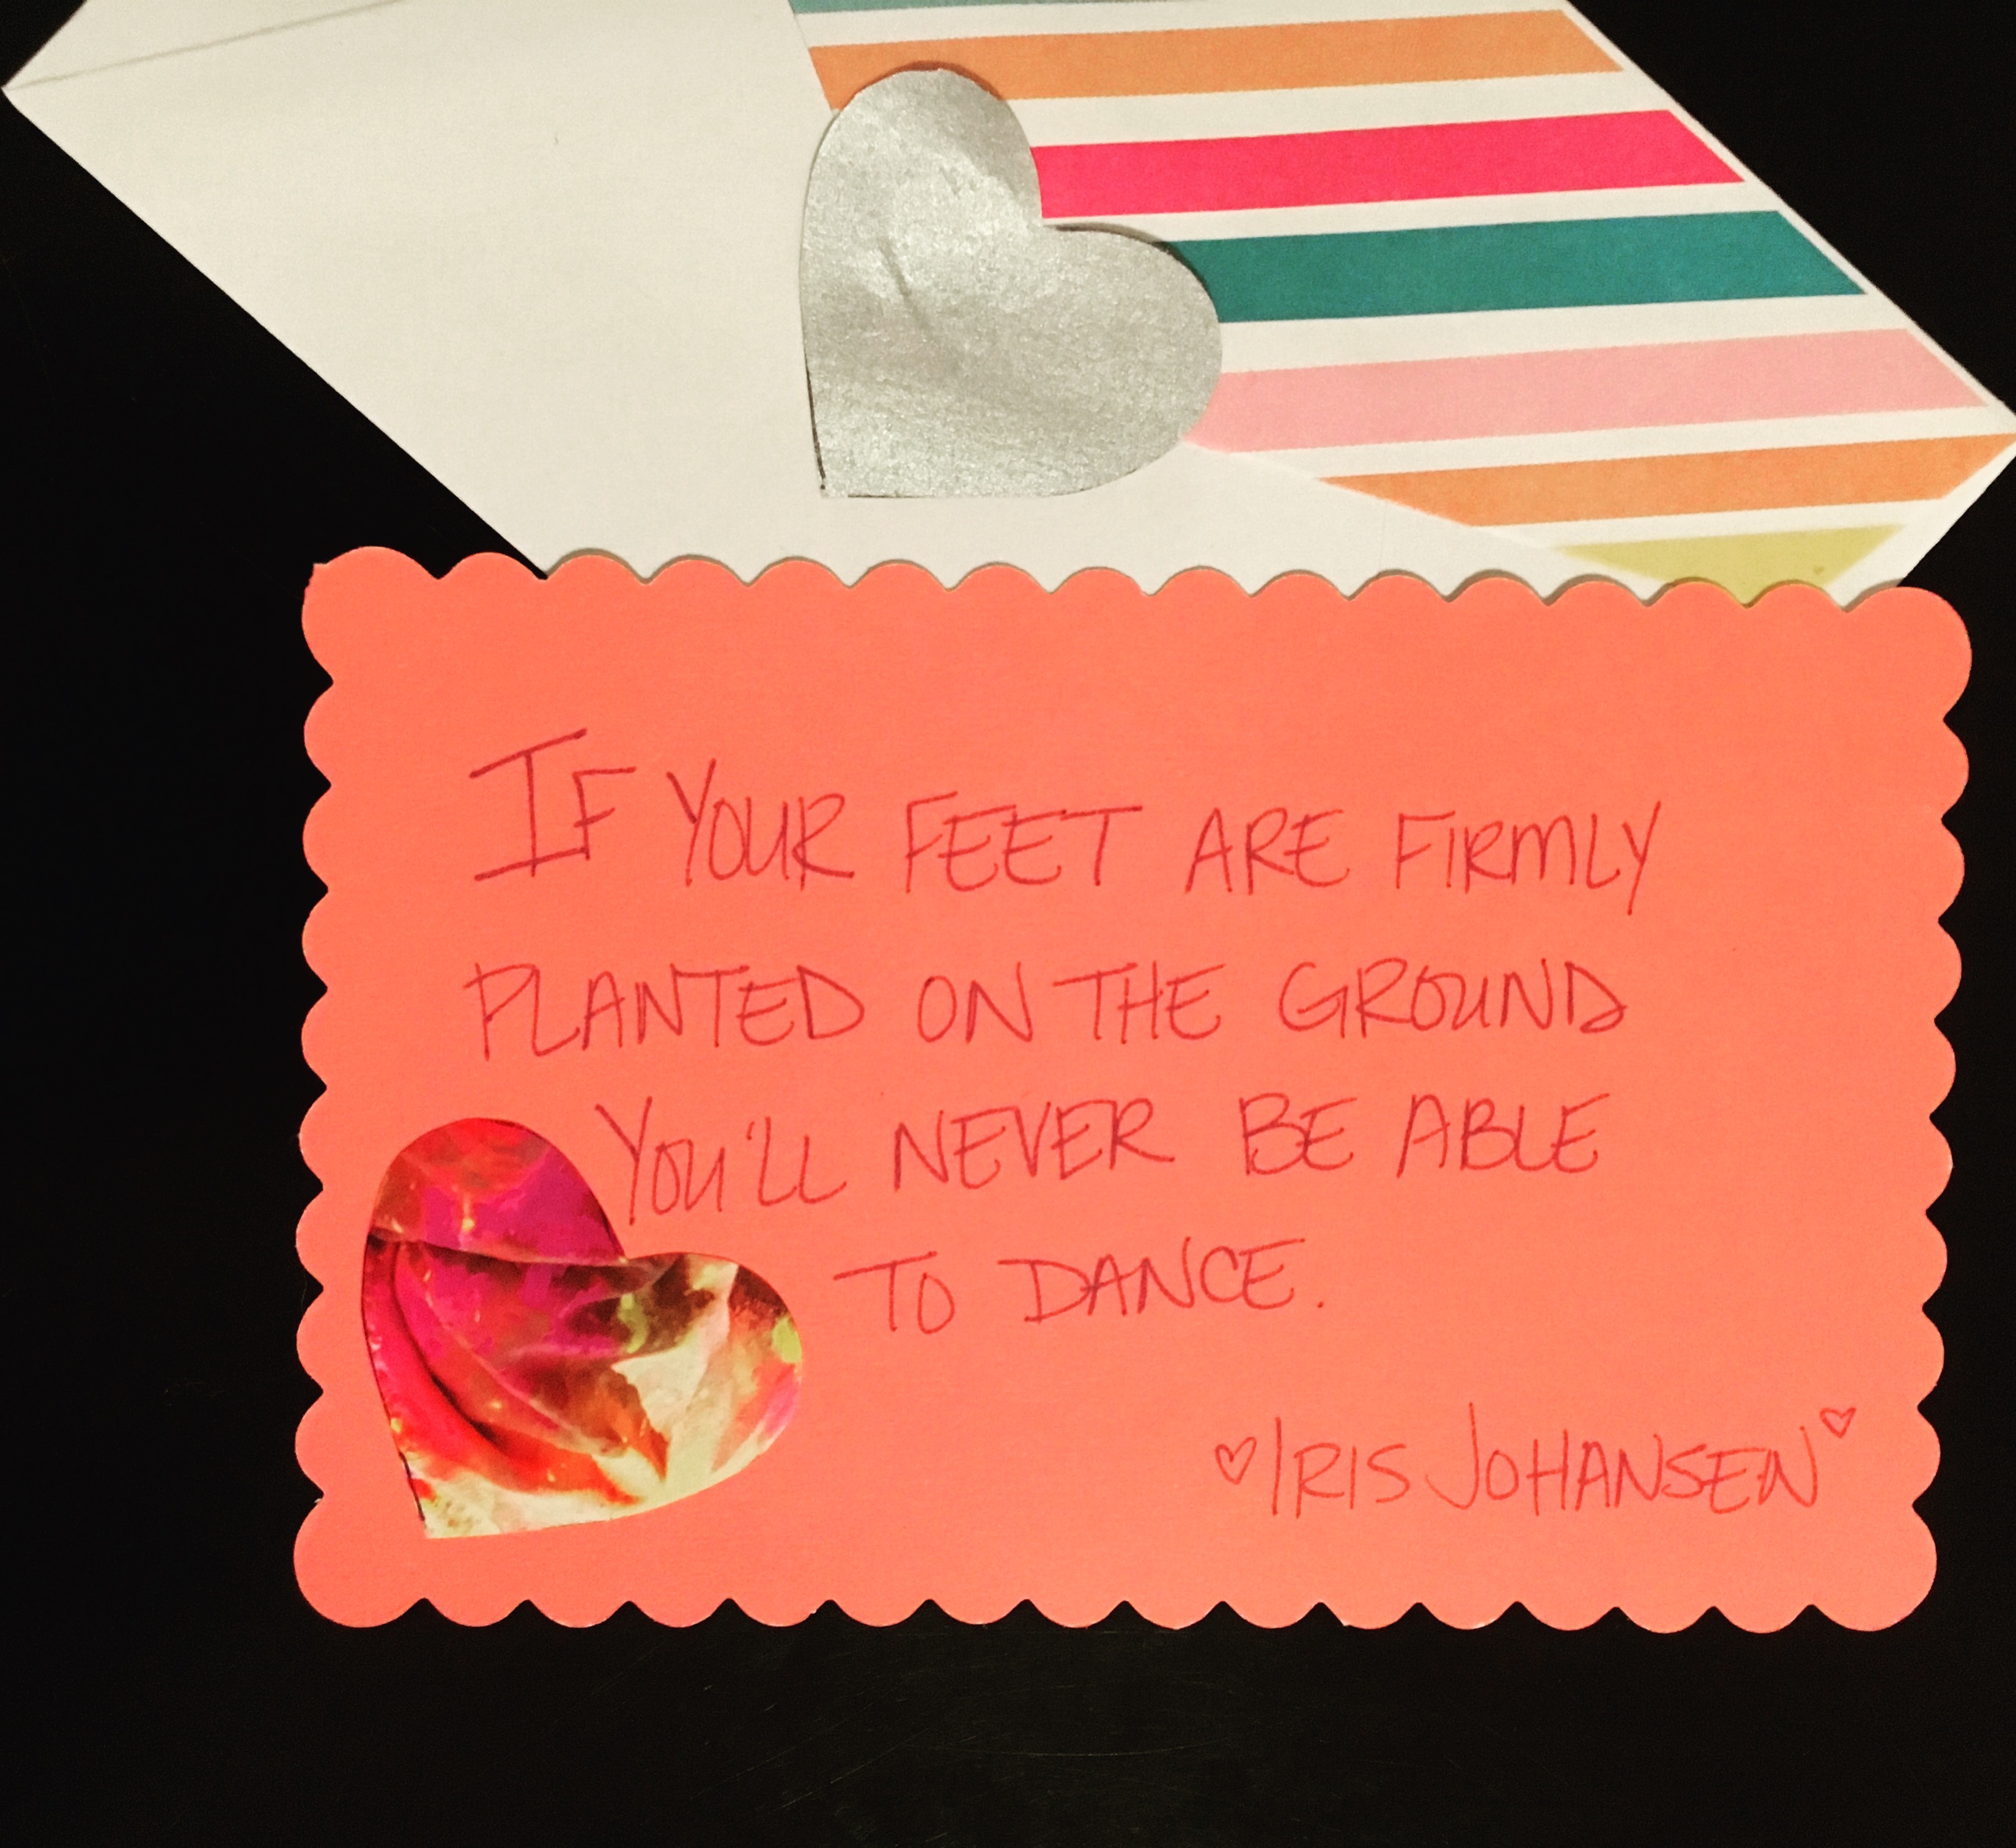 IF YOUR FEET ARE FIRMLY
PLANTED ON THE GROUND
YOU'LL NEVER BE ABLE
TO DANCE.
♡IRIS JOHANSEN♡